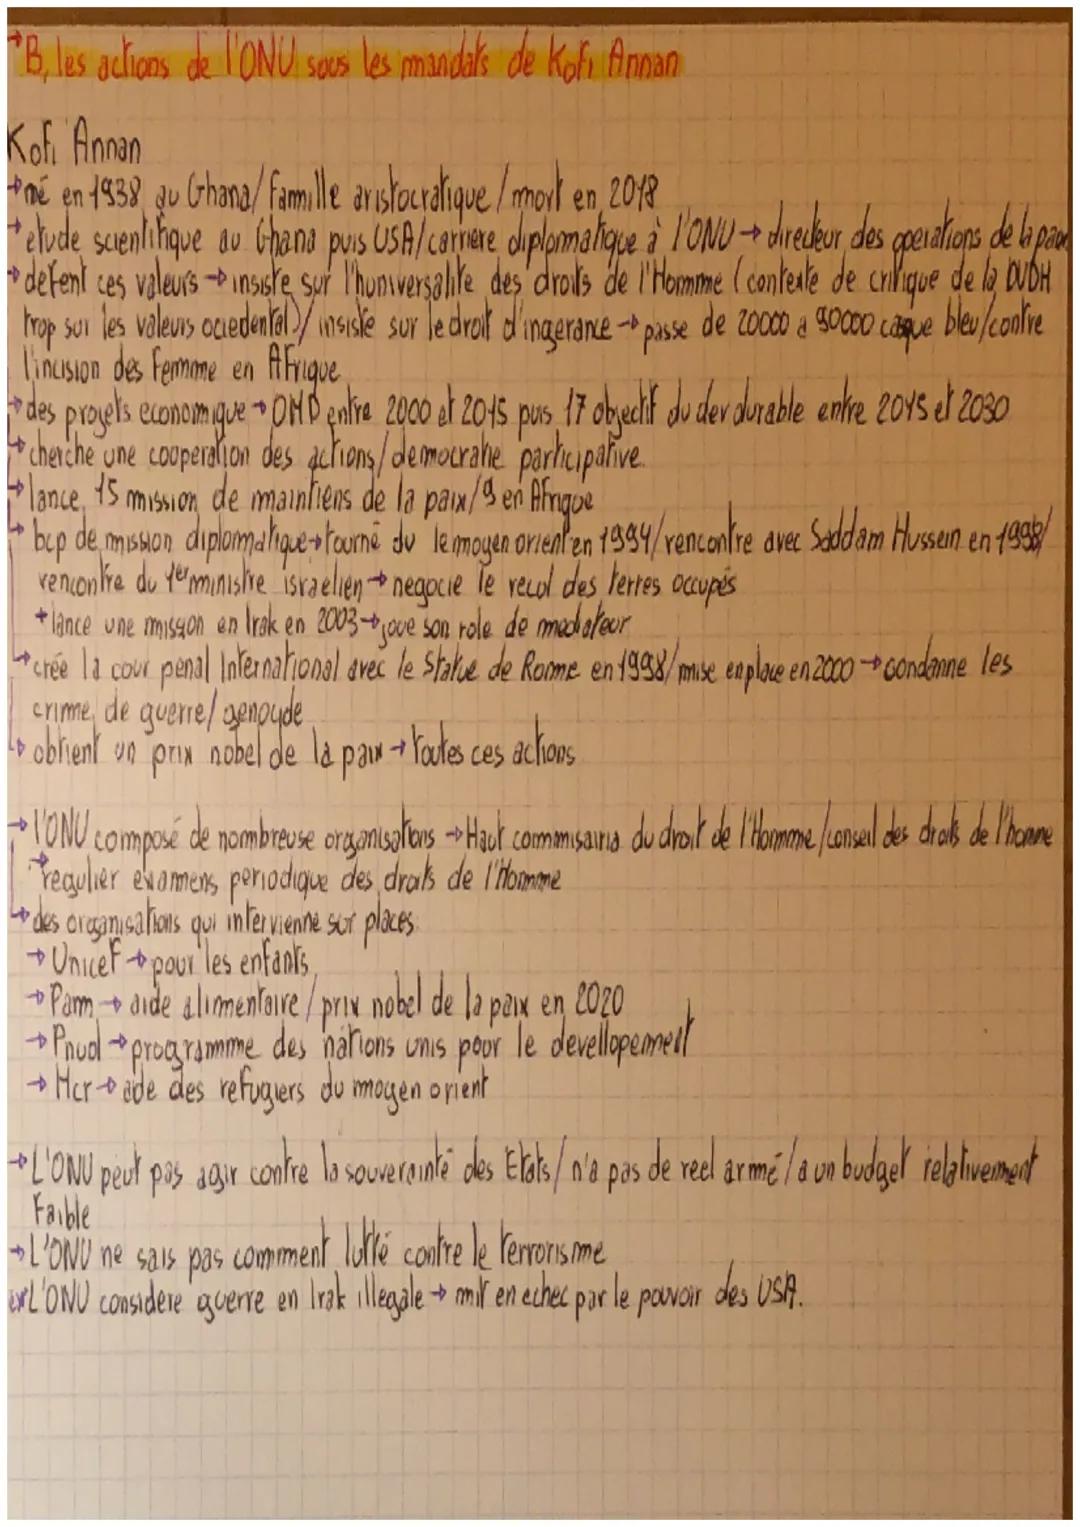 →B, les actions de l'ONU sous les mandats de Kofi Annan
Kofi Annan
→né en 1938 au Ghana/Fammille aristocratique/mort en 2018
→etude scientifique au Ghana puis USA/carriere diplommatique à l'ONU→directeur des operations de la paix
→defent ces valeurs→insiste sur l'huniversalité des droits de l'Hommme (contexte de critique de la DUDH
trop sur les valeurs ociedental)/insiste sur le droit d'ingerance→passe de 20000 a 90000 casque bleu/contre
l'incision des Femmme en AFrique
→des projets economique→OMD entre 2000 et 2015 puis 17 objectif du dev durable entre 2015 et 2030
→cherche une cooperation des actions/democratie participative.
→lance 15 mission de maintiens de la paix/9 en Afrique
→bcp de mission diplommatique→tourné du le moyen orient en 1994/rencontre avec Saddam Hussein en 1998/
rencontre du 1er ministre israelien→negocie le recul des terres occupés
+lance une mission en Irak en 2003→joue son role de mediateur
→crée la cour penal International avec le Statue de Rome en 1998/mise en place en 2000→condamne les
crime de guerre/genocyde
→obtient un prix nobel de la paix→toutes ces actions
→l'ONU composé de nombreuse organisations→Haut commmisairia du droit de l'Hommme/conseil des droits de l'homme
→regulier examens periodique des droits de l'Homme
→des organisations qui intervienne sur places
→Unicef→pour les enfants
→Pam→aide alimentaire/prix nobel de la paix en 2020
→Pnud→programmme des nations unis pour le devellopement
→Hcr→aide des refugiers du moyen orient
→L'ONU peut pas agir contre la souverainté des Etats/n'a pas de reel armé/a un budget relativement
Faible
→L'ONU ne sais pas comment lutté contre le terrorisme
ex L'ONU considere guerre en Irak illegale→mit en echec par le pouvoir des USA.